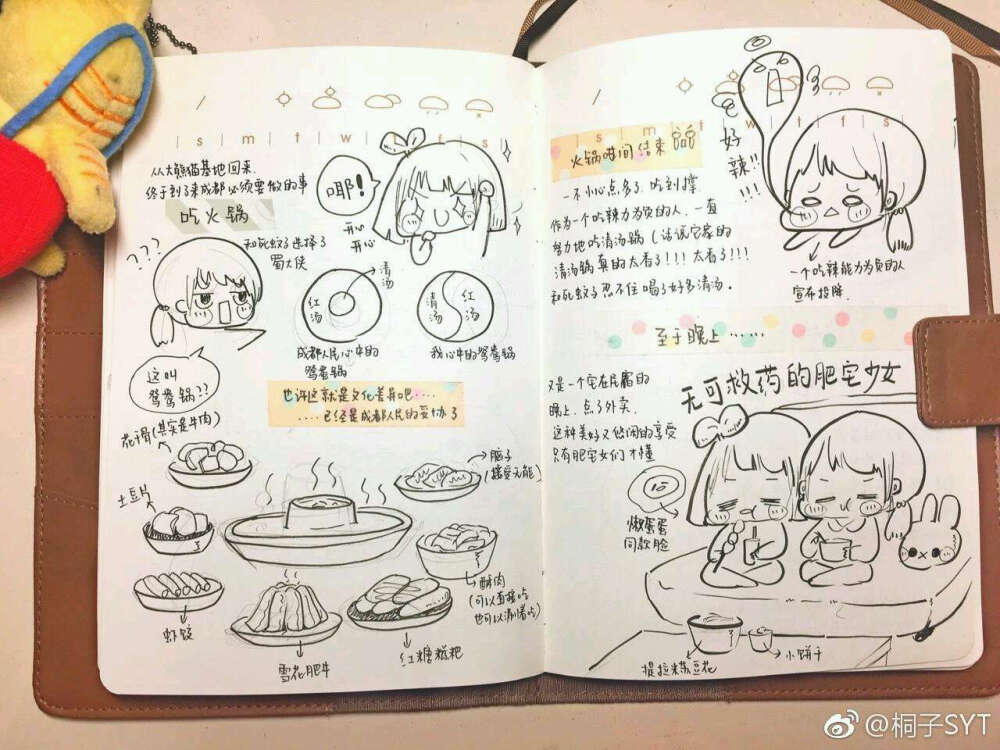 /
s m t w t f s
从大熊猫基地回来.
终于到了来成都必须要做的事
吃火锅
耶!
开心
开心
???
和死蚊子选择了
蜀大侠
这叫
鸳鸯锅??
清汤
红汤
成都人民心中的
鸳鸯锅
清汤
红汤
我心中的鸳鸯锅
也许这就是文化差异吧.....
....已经是成都人民的妥协了
花骨(其实是牛肉)
土豆片
虾饺
雪花肥牛
红糖糍粑
酥肉
(可以直接吃
也可以涮着吃)
脑子
(接受无能)
/
s m t w t f s
火锅时间结束
一不小心点多了.吃到撑
作为一个吃辣力为负的人.一直
努力地吃清汤锅(话说它家的
清汤锅真的太香了!!!太香了!!!
和死蚊子忍不住喝了好多清汤。
好辣!!
!!!
一个吃辣能力为负的人
宣布投降.
至于晚上……
又是一个宅在民宿的
晚上.点了外卖.
这种美好又悠闲的享受
只有肥宅女们才懂
无可救药的肥宅少女
懒蛋蛋
同款脸
提拉米苏豆花
小饼干
@桐子SYT